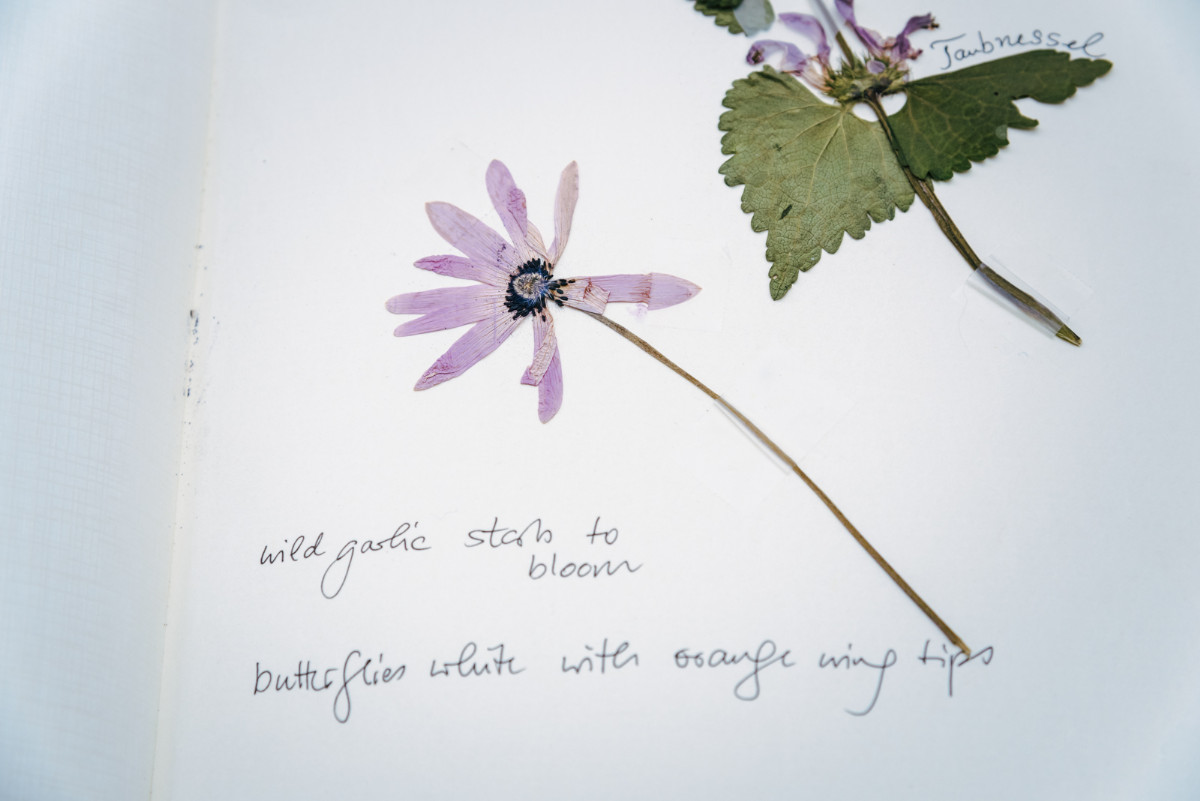 Taubnessel
wild garlic starts to
bloom
butterflies white with orange wing tips